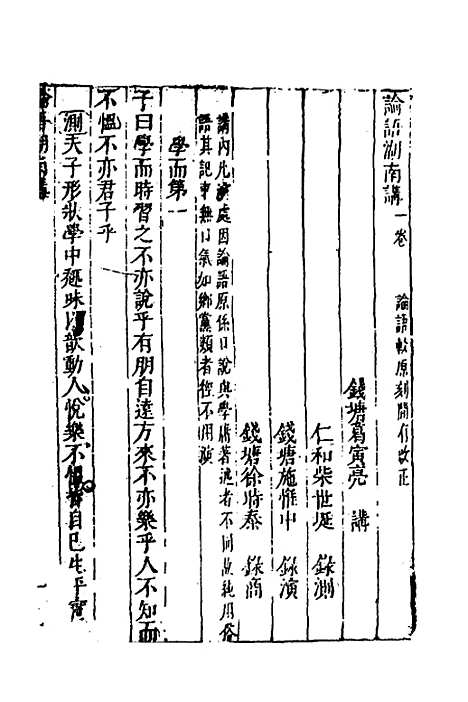 論語湖南講一卷 論語較原刻間有改正
錢塘葛寅亮 講
仁和柴世埏 錄測
錢塘施惟中 錄演
錢塘徐時泰 錄商
講內凡演處因論語原係口說與學庸著述者不同故純用俗
語其記事無口氣如鄉黨類者徑不用演
學而第一
子曰學而時習之不亦說乎有朋自遠方來不亦樂乎人不知而
不慍不亦君子乎
測夫子形狀學中趣味以歆動人悅樂不慍皆自己生平實